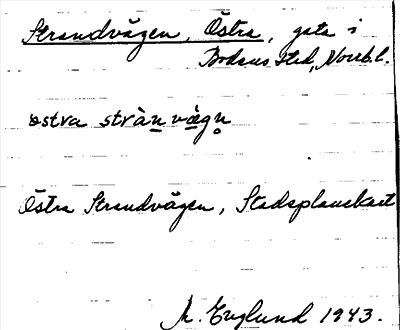 Strandvägen, Östra, gata i
Bodens stad, Norrb.l.
östra strànvä̀gn̥
Östra Strandvägen, Stadsplanekart
M. Englund 1943.